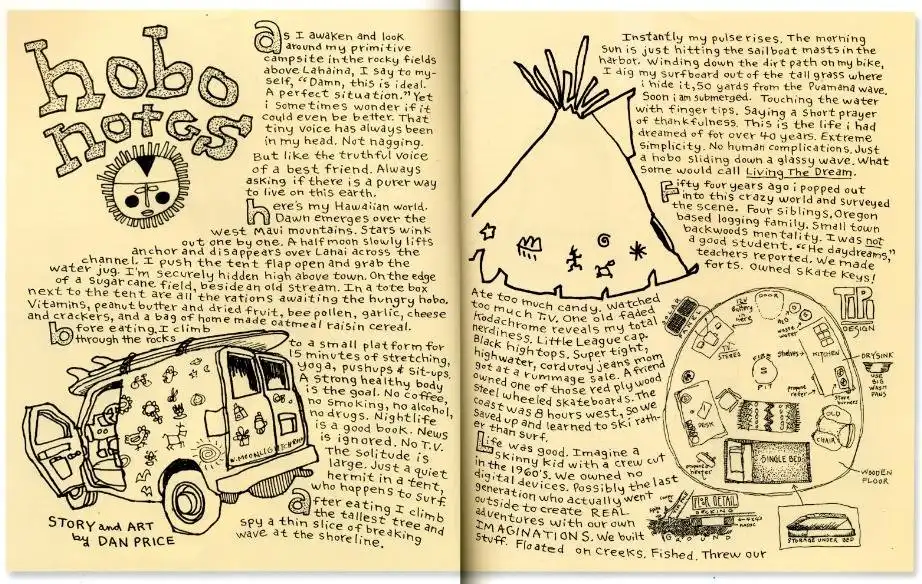 hobo
notes
As I awaken and look
around my primitive
campsite in the rocky fields
above Lahaina, I say to my-
self, "Damn, this is ideal.
A perfect situation." Yet
i sometimes wonder if it
could even be better. That
tiny voice has always been
in my head. Not nagging.
But like the truthful voice
of a best friend. Always
asking if there is a purer way
to live on this earth.
here's my Hawaiian world.
Dawn emerges over the
west Maui mountains. Stars wink
out one by one. A half moon slowly lifts
anchor and disappears over Lanai across the
channel. I push the tent flap open and grab the
water jug. I'm securely hidden high above town. On the edge
of a sugarcane field, beside an old stream. In a tote box
next to the tent are all the rations awaiting the hungry hobo.
Vitamins, peanut butter and dried fruit, bee pollen, garlic, cheese
and crackers, and a bag of home made oatmeal raisin cereal.
before eating, I climb
through the rocks
to a small platform for
15 minutes of stretching,
yoga, pushups & sit-ups.
A strong healthy body
is the goal. No coffee,
no smoking, no alcohol,
no drugs. Nightlife
is a good book. News
is ignored. No T.V.
The solitude is
large. Just a quiet
hermit in a tent,
who happens to surf.
after eating I climb
the tallest tree and
spy a thin slice of breaking
wave at the shoreline.
STORY and ART
by DAN PRICE
Instantly my pulse rises. The morning
sun is just hitting the sailboat masts in the
harbor. Winding down the dirt path on my bike,
I dig my surfboard out of the tall grass where
i hide it, 50 yards from the Puamana wave.
Soon i am submerged. Touching the water
with finger tips. Saying a short prayer
of thankfulness. This is the life i had
dreamed of for over 40 years. Extreme
simplicity. No human complications. Just
a hobo sliding down a glassy wave. What
some would call Living The Dream.
Fifty four years ago i popped out
into this crazy world and surveyed
the scene. Four siblings, Oregon
based logging family. Small town
backwoods mentality. I was not
a good student. "He daydreams,"
teachers reported. We made
forts. Owned skate keys!
Ate too much candy. Watched
too much T.V. One old faded
Kodachrome reveals my total
nerdiness. Little League cap.
Black hightops. Super tight,
highwater, corduroy jeans mom
got at a rummage sale. A friend
owned one of those red plywood
steel wheeled skateboards. The
coast was 8 hours west, so we
saved up and learned to ski rath-
er than surf.
Life was good. Imagine a
skinny kid with a crew cut
in the 1960's. We owned no
digital devices. Possibly the last
generation who actually went
outside to create REAL
adventures with our own
IMAGINATIONS. We built
stuff. Floated on creeks. Fished. Threw our
TiPi
DESIGN
SOLAR
PANELS
DOOR
12V
BATTERY
STEREO
H2O
WASTE
WATER
shelves
KITCHEN
DRY SINK
USE
BIG
WASH
PANS
FIRE
PIT
propane
stove
burners
DESK
OLD
CHAIR
propane
heater
SINGLE BED
WOODEN
FLOOR
FLOOR DETAIL
DECKING
GROUND
STORAGE UNDER BED